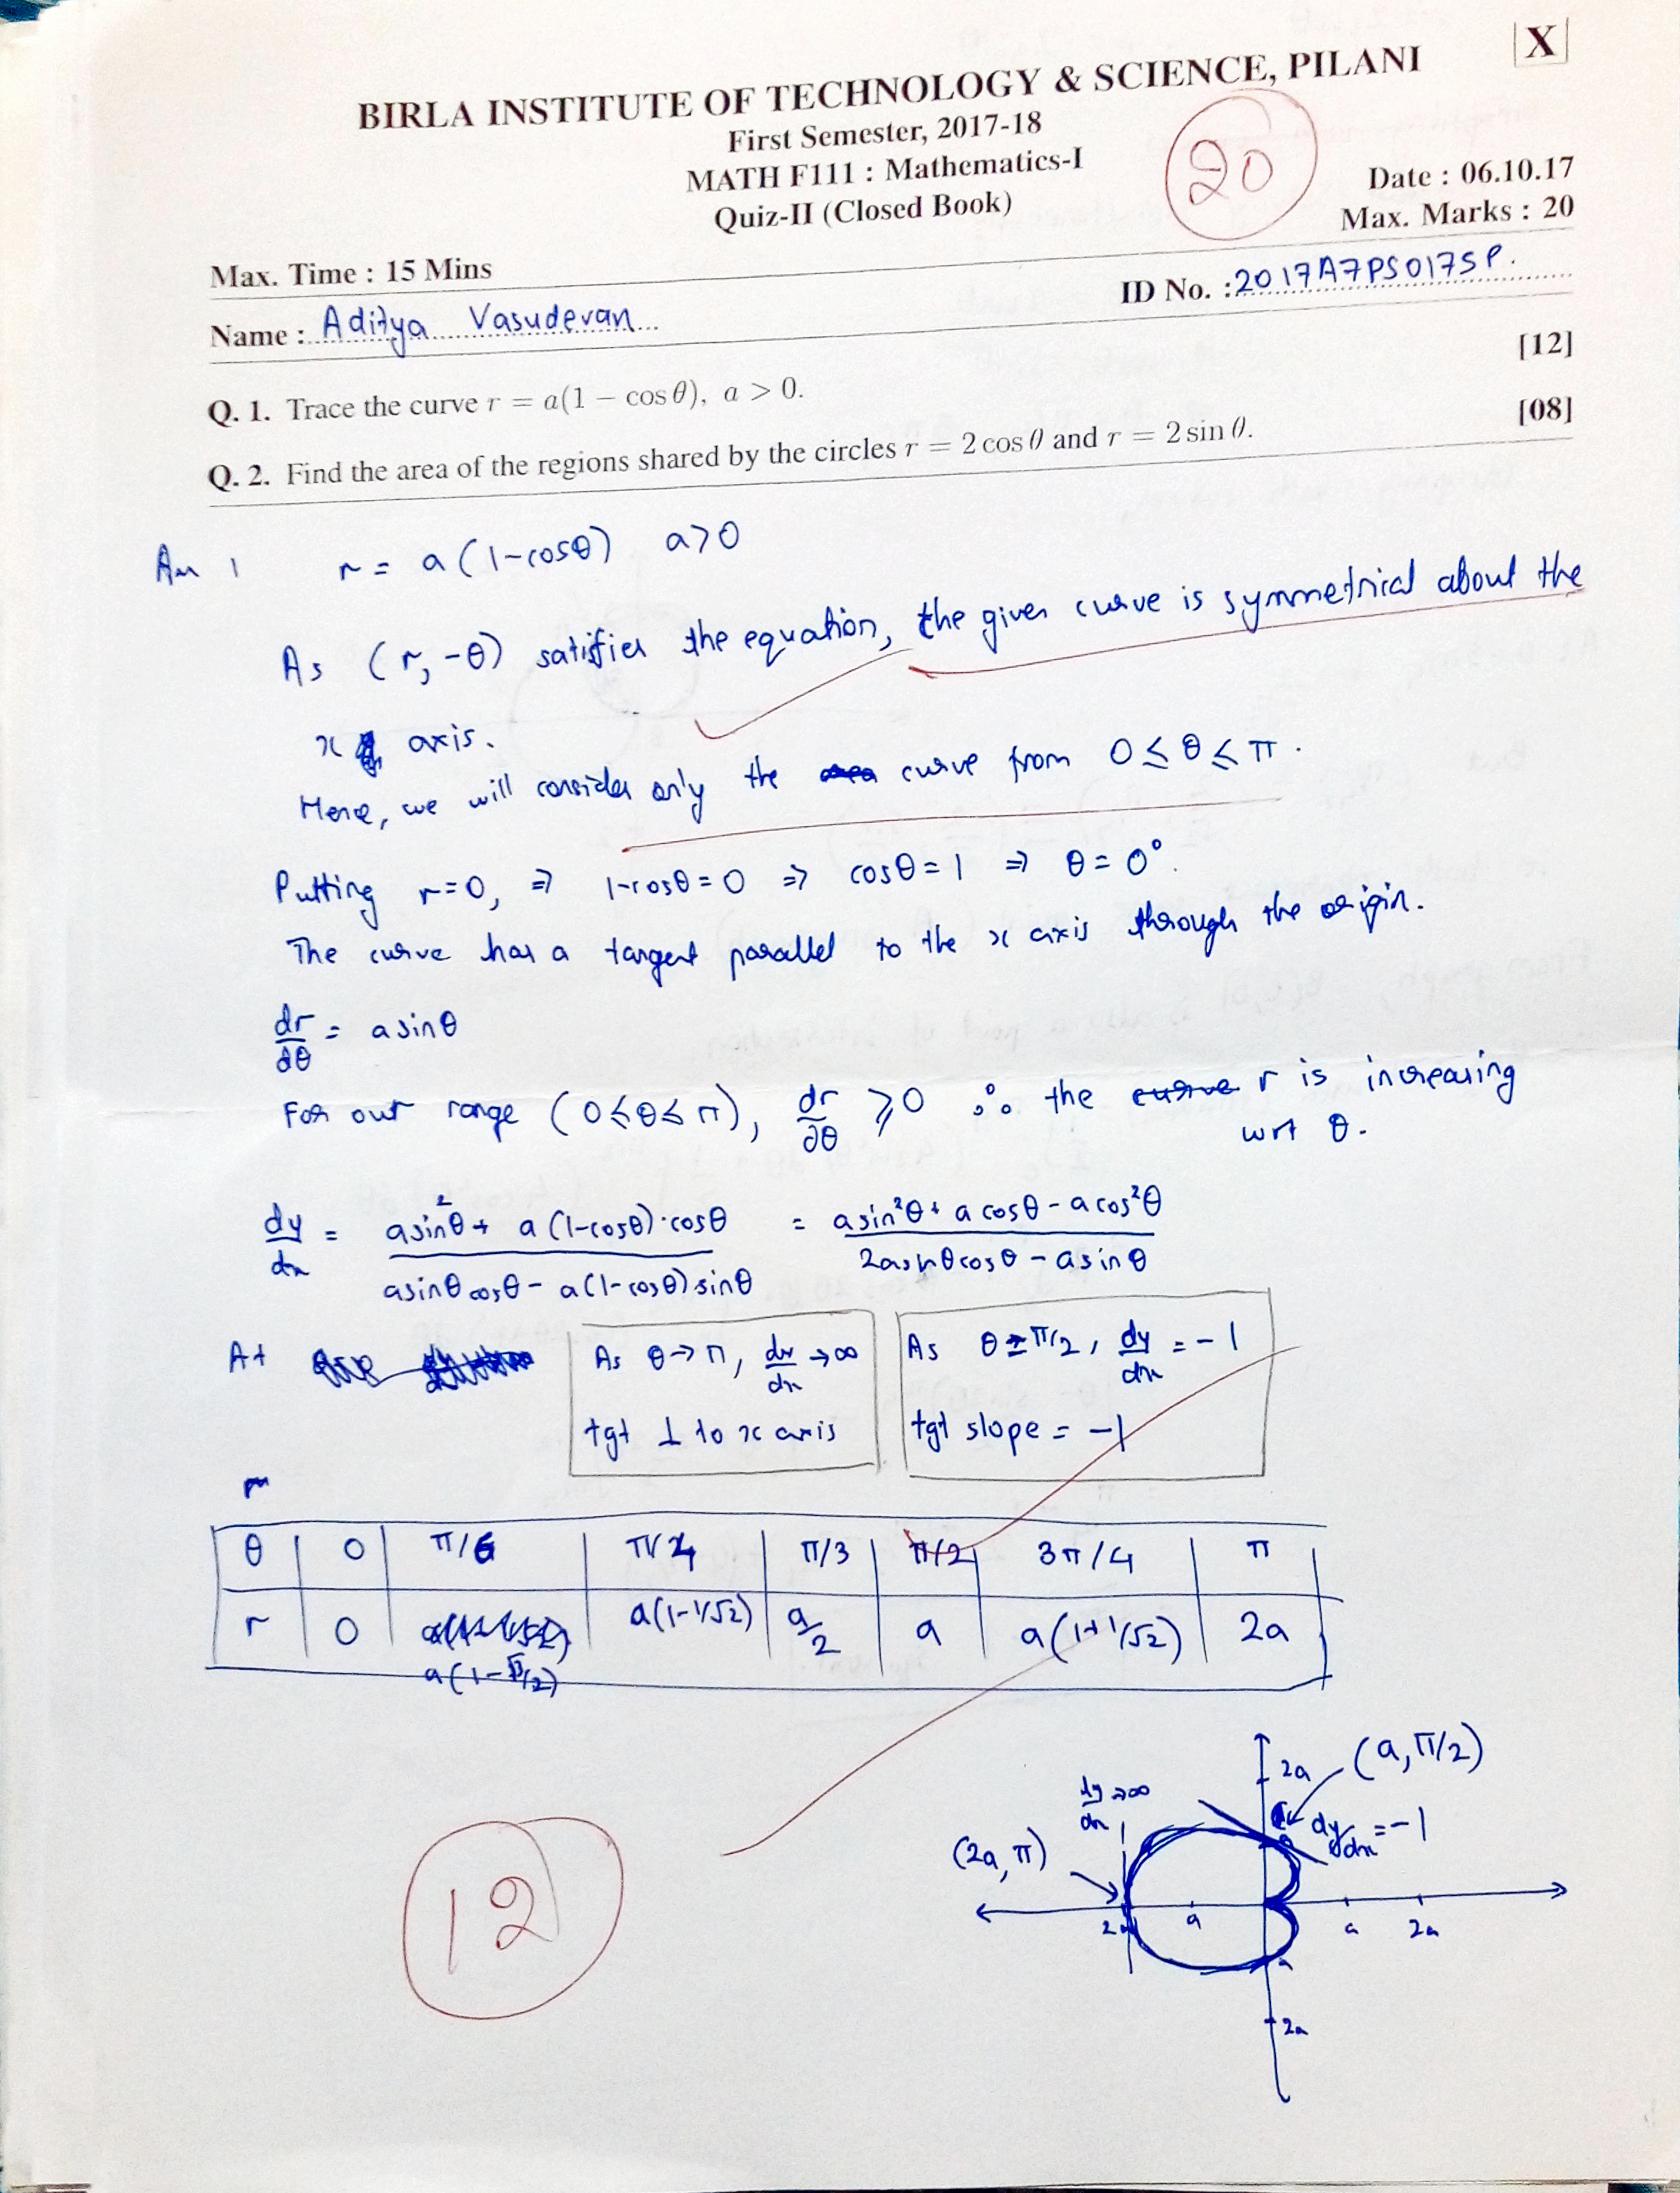 X
BIRLA INSTITUTE OF TECHNOLOGY & SCIENCE, PILANI
First Semester, 2017-18
MATH F111 : Mathematics-I
Quiz-II (Closed Book)
20
Date : 06.10.17
Max. Marks : 20
Max. Time : 15 Mins
ID No. : 2017A7PS0175P.
Name : Aditya Vasudevan
[12]
Q. 1. Trace the curve r = a(1 − cos θ), a > 0.
[08]
Q. 2. Find the area of the regions shared by the circles r = 2 cos θ and r = 2 sin θ.
An 1 r = a(1-cosθ) a>0
As (r, -θ) satisfies the equation, the given curve is symmetrical about the
x axis.
Here, we will consider only the curve from 0 ≤ θ ≤ π.
Putting r=0, ⇒ 1-cosθ=0 ⇒ cosθ=1 ⇒ θ=0°.
The curve has a tangent parallel to the x axis through the origin.
dr/dθ = a sinθ
For our range (0≤θ≤π), dr/dθ ⩾ 0 ∴ the r is increasing
wrt θ.
dy/dx = asin²θ + a(1-cosθ)·cosθ / asinθcosθ - a(1-cosθ)sinθ = asin²θ + acosθ - acos²θ / 2asinθcosθ - asinθ
At
As θ→π, dy/dx →∞
tgt ⊥ to x axis
As θ=π/2, dy/dx = -1
tgt slope = -1
θ 0 π/6 π/4 π/3 π/2 3π/4 π
r 0 a(1-√3/2) a(1-1/√2) a/2 a a(1+1/√2) 2a
12
2a (a, π/2)
dy/dx →∞
dy/dx = -1
(2a, π)
a a 2a
2a